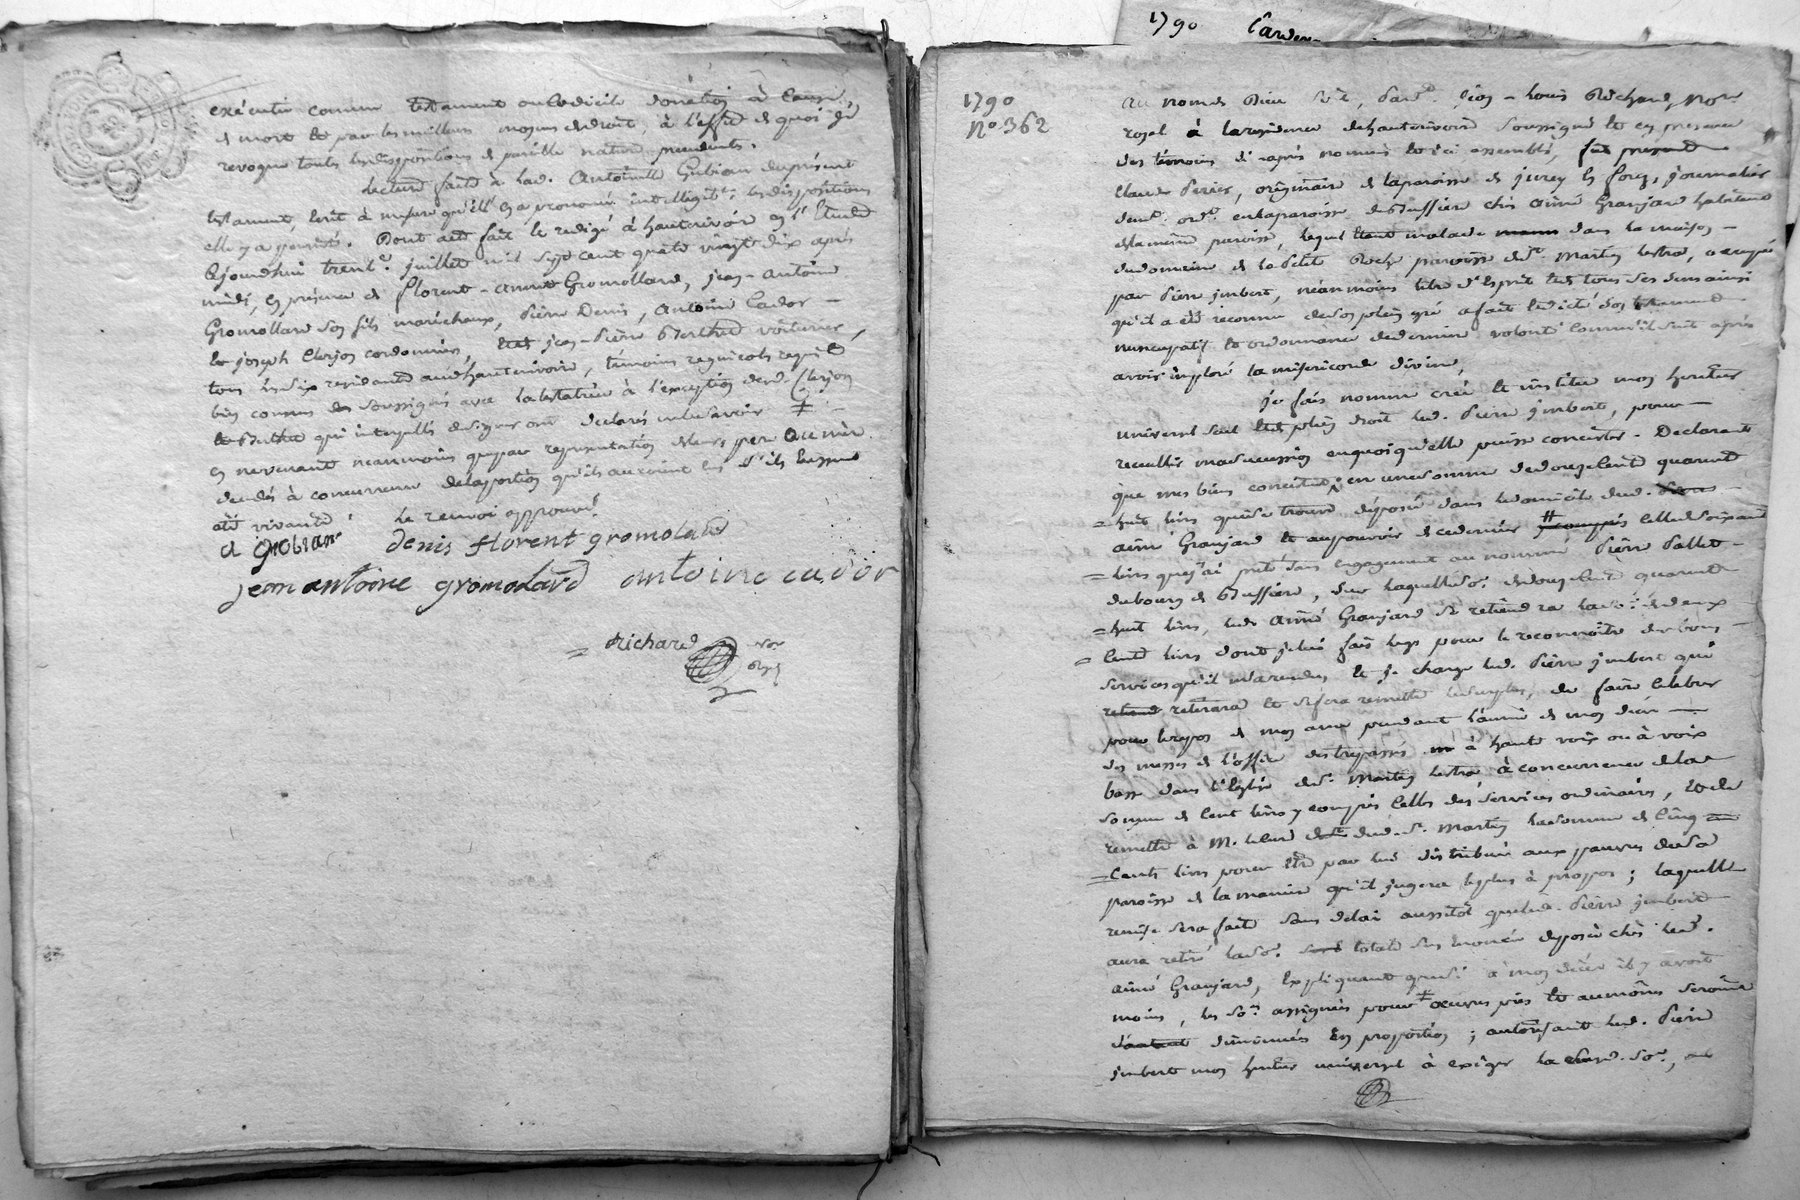 exécuté comme testament ou codicile donation à cause
de mort et par les meilleurs moyens de droit, à l'effet de quoi je
revoque touts les dispositions de pareille nature precedents.
Lecture faite à lad. Antoinette Gubian du présent
testament, écrit à mesure qu'elle en a prononcé intelligt. les dispositions
elle y a persisté. Dont acte fait et redigé à hauterivoire en l'Etude
cejourdhui trente juillet mil sept cent quatre vingt dix après
midi, en présence de florent-anné Gromollard, jean-antoine
Gromollard son fils maréchaux, Pierre Denis, Antoine Cador -
et joseph Clerjon cordonnier, jean-Pierre Berthet voiturier,
tous les six residents aud. hauterivoire, témoins requis
bien connus des soussignés avec la testatrice à l'exception desd. Clerjon
et Berthet qui interpellés de signer ont declarés ne le savoir ‡ -
en revenant neanmoins que par representation de leurs per ou mère
decedés à concurrence de la portion qu'ils auroient eu s'ils eussent
été vivants le renvoi approuvé
A gubian denis florent gromolard
jean antoine gromolard antoine cador
= Richard Nore
Royl
1790 Carden
1790
No. 362
Au nom de Dieu soit, Pardt. jean-Louis Richard, Nore
royal à la residence de hauterivoire soussigné et en presence
des témoins ci après nommés et ici assemblés, fut present
Claude Perier, originaire de la paroisse de jurey en forez, journalier
demt. ordt. en la paroisse de Bussiere chés aimé Granjard habitant
de la même paroisse, lequel malade dans la maison -
du domaine de la Petite Roche paroisse de St. Martin lestra, occupée
par Pierre jmbert, néanmoins libre d'Esprit et de tous ses sens ainsi
qu'il a été reconnu de son plein gré a fait et dicté son testament
nuncupatif et ordonnance de derniere volonté comme il suit après
avoir imploré la misericorde divine,
je fais nomme créé et institue mon heritier
universel seul et de plein droit led. Pierre jmbert, pour
recueillir ma succession en quoi qu'elle puisse consister. Declarant
que mes biens consistent, en une somme de douze cents quarante
= huit livres qui se trouve déposée dans le domicile dud.
aimé Granjard et au pouvoir de ce dernier # y compris celle de soixante
= livres que j'ai prêté sans engagement au nommé Pierre Pallet -
du bourg de Bussiere, sur laquelle so: de douze cents quarante
= huit livres, led. aimé Granjard se retiendra la so: de deux
= cents livres dont je lui fais legs pour le reconnoitre des bons -
services qu'il m'a rendus et je charge led. Pierre jmbert qui
retiend retirera et se fera remettre le surplus, de faire celebrer
pour le repos de mon ame pendant l'année de mon deces -
des messes de l'office des trepassés à haute voix ou à voix
basse dans l'Eglise de St. Martin lestra, à concurrence de la
somme de cent livres y compris celles des services ordinaires, et de
remettre à M. le Curé dud. St. Martin la somme de Cinq
= Cents livres pour être par lui distribuée aux pauvres de sa
paroisse de la maniere qu'il jugera le plus à propos; laquelle
remise sera faite sans delai aussitôt que led. Pierre jmbert
aura retiré lad. so: totale deposée chés led.
aimé Granjard, Expliquant que si à mon décès il y avoit
moins, les sos. assignées pour ‡ œuvres pies et aumônes seroient
d'autant diminuées en proportion; autorisant led. Pierre
jmbert mon heritier universel à exiger la so.,